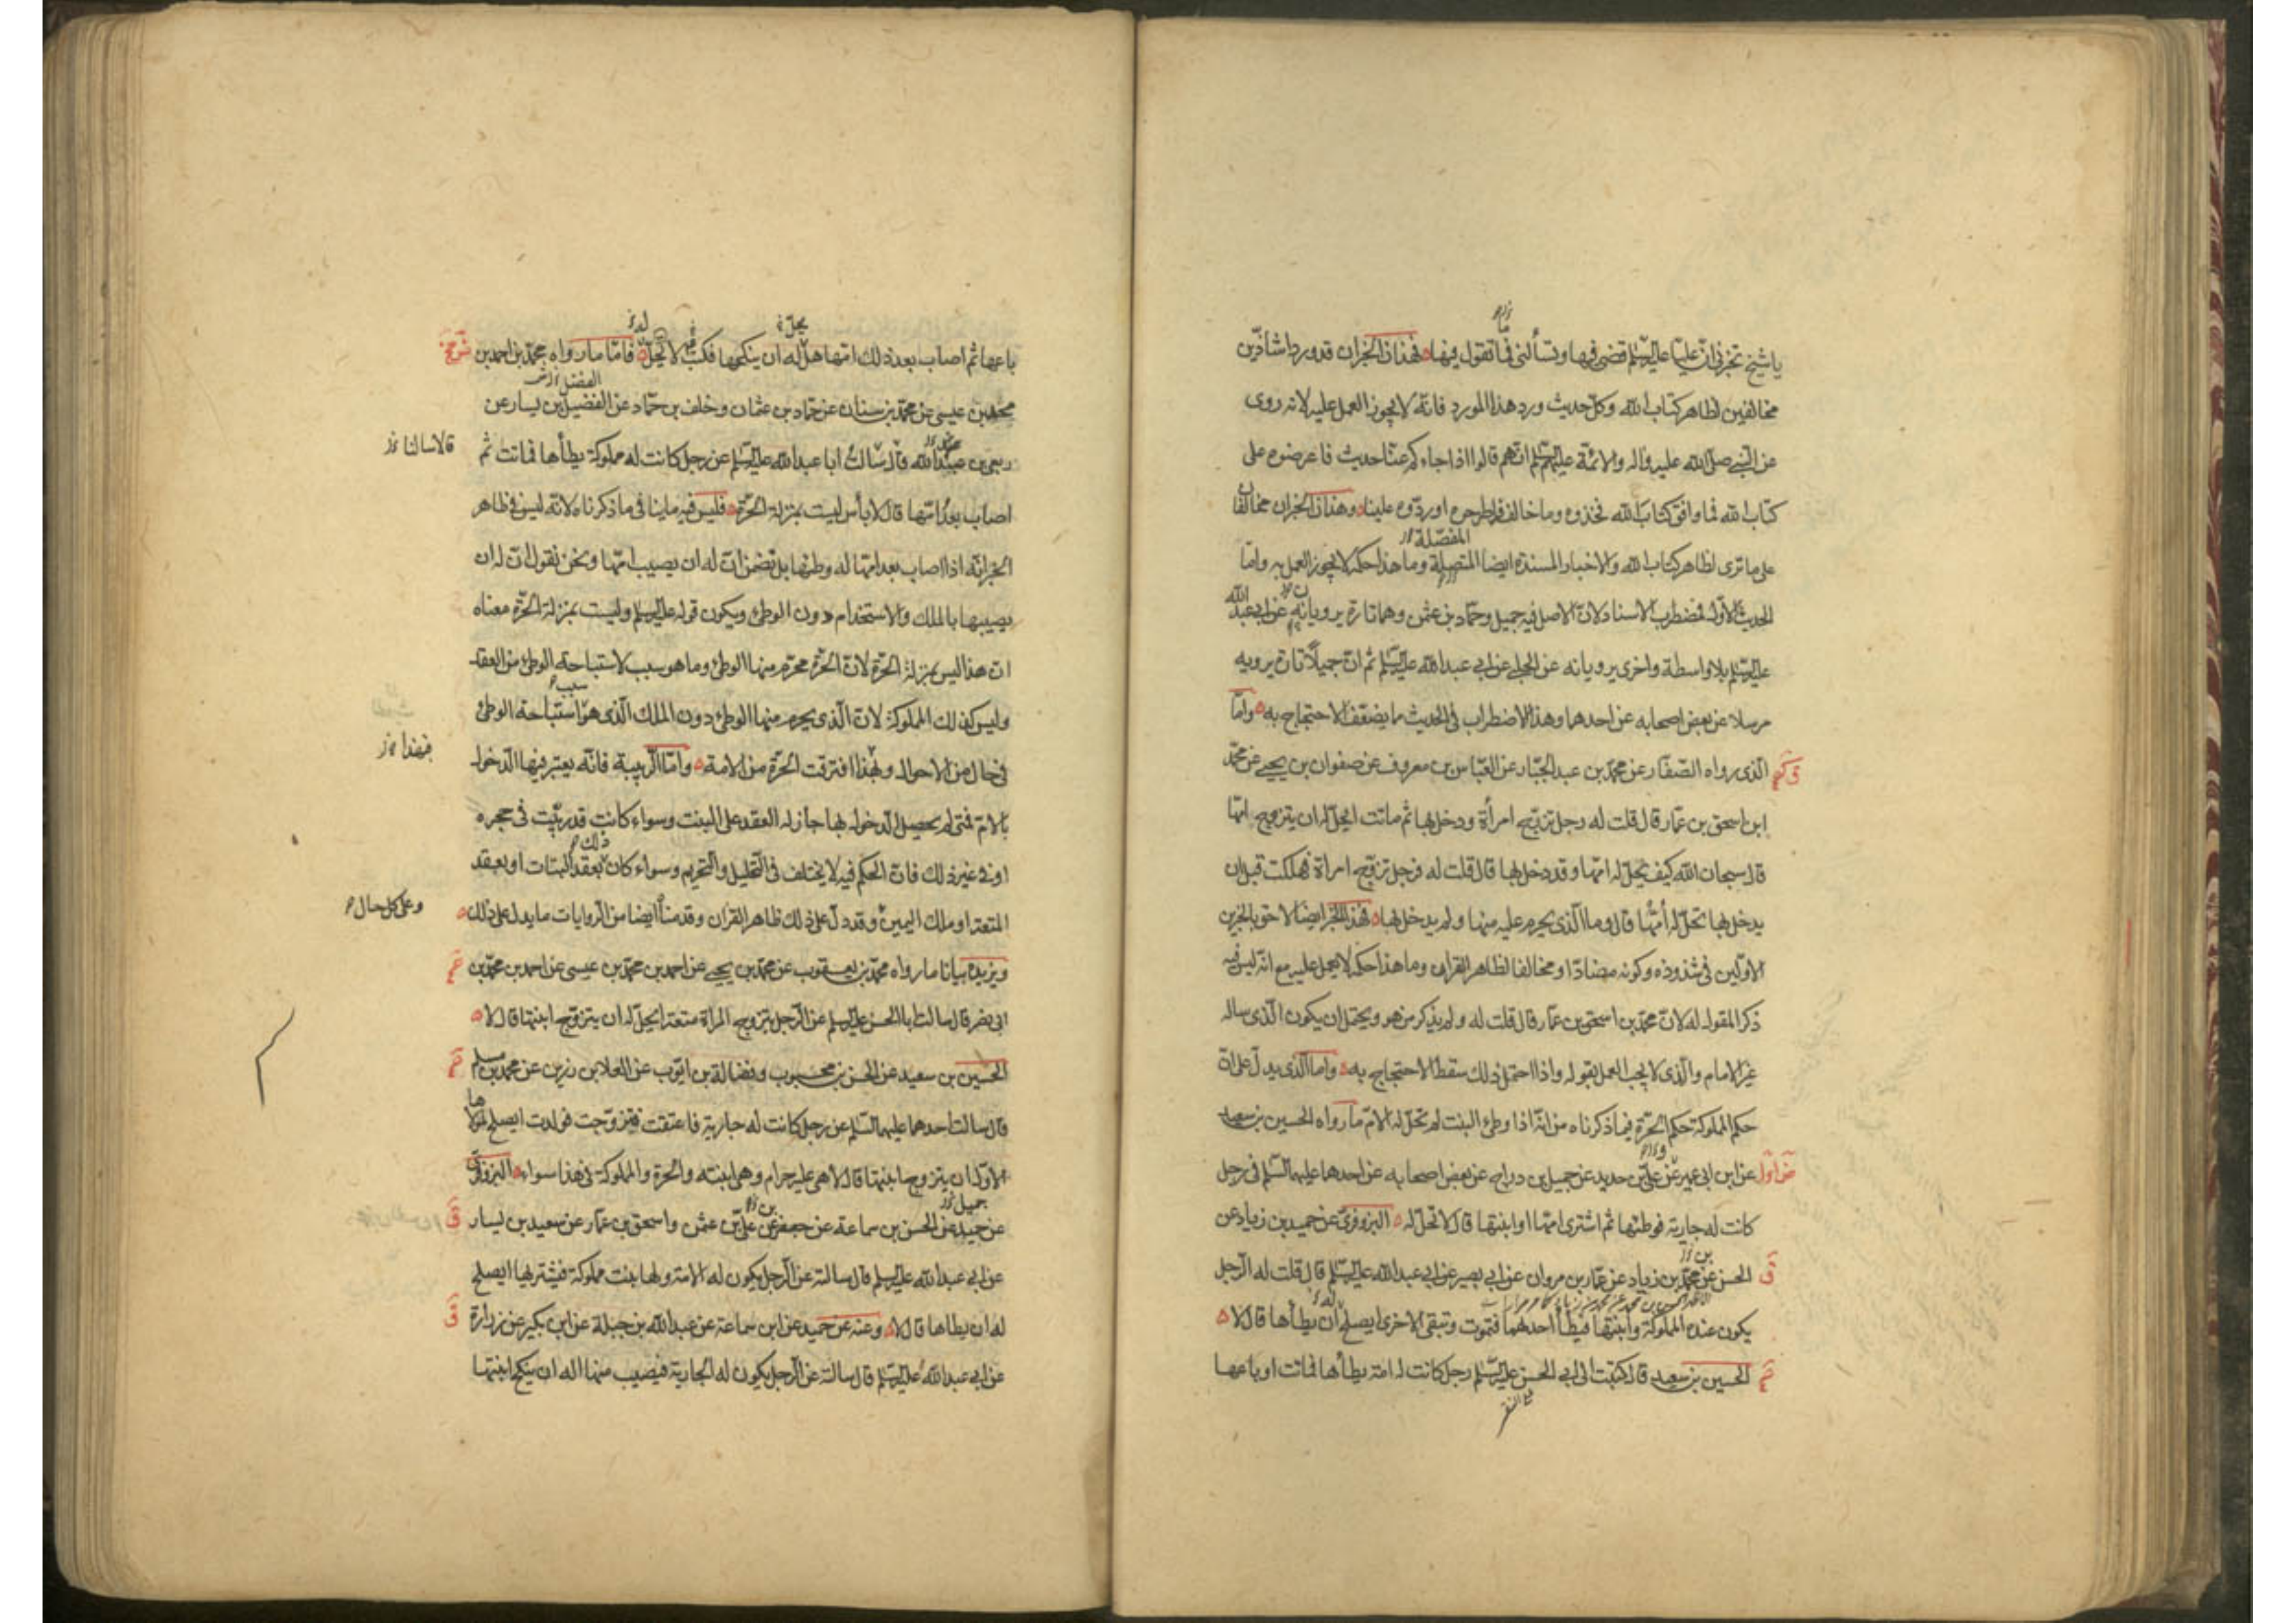 يا شيخ تخبرني ان عليّا عليه السلم قضى فيها وتسألني فما تقول فيها فهذان الخبران قد وردا شاذّين
مخالفين لظاهر كتاب الله وكلّ حديث ورد هذا المورد فانه لا يجوز العمل عليه لانه روى
عن النبي صلى الله عليه وآله والائمة عليهم السلم انهم قالوا اذا جاءكم عنّا حديث فاعرضوه على
كتاب الله فما وافق كتاب الله فخذوه وما خالف فاطرحوه او ردّوه علينا وهذان الخبران مخالفان
المفصّلة
على ما ترى لظاهر كتاب الله والاخبار المسندة ايضا المتصلة وما هذا حكمه لا يجوز العمل به وامّا
الحديث الاوّل فمضطرب الاسناد لانّ الاصل فيه جميل وحمّاد بن عثمن وهما تارة يرويانه عن ابي عبد الله
عليه السلم بلا واسطة واخرى يرويانه عن الحلبي عن ابي عبد الله عليه السلم ثم انّ جميلا تارة يرويه
مرسلا عن بعض اصحابه عن احدهما وهذا الاضطراب في الحديث مما يضعّف الاحتجاج به وامّا
الّذي رواه الصفّار عن محمّد بن عبد الجبّار عن العبّاس بن معروف عن صفوان بن يحيى عن محمّد
ابن اسحق بن عمّار قال قلت له رجل تزوّج امرأة ودخل بها ثم ماتت ايحلّ له ان يتزوج امّها
قال سبحان الله كيف يحلّ له امّها وقد دخل بها قال قلت له فرجل تزوّج امراة فهلكت قبل ان
يدخل بها تحلّ له أمّها قال وما الّذي يحرم عليه منها ولم يدخل بها فهذا الخبر ايضا لاحق بالخبرين
الاوّلين في شذوذه وكونه مضادّا ومخالفا لظاهر القران وما هذا حكمه لا يعمل عليه مع انّه ليس فيه
ذكر المقول له لانّ محمّد بن اسحق بن عمّار قال قلت له ولم يذكر من هو ويحتمل ان يكون الّذي ساله
غير الامام والّذي لا يجب العمل بقوله واذا احتمل ذلك سقط الاحتجاج به وامّا الّذي يدلّ على انّ
حكم المملوكة حكم الحرّة فيما ذكرناه من انّه اذا وطئ البنت لم تحلّ له الامّ ما رواه الحسين بن سعيد
عن ابن ابي عمير عن عليّ بن حديد عن جميل بن دراج عن بعض اصحابه عن احدهما عليهما السّلم في رجل
كانت له جارية فوطئها ثم اشترى امّها او ابنتها قال لا تحلّ له البزوفريّ عن حميد بن زياد عن
الحسن عن محمّد بن زياد عن عمّار بن مروان عن ابي بصير عن ابي عبد الله عليه السّلم قال قلت له الرّجل
يكون عنده المملوكة وابنتها فيطأ احدهما فتموت وتبقى الاخرى ايصلح له أن يطأها قال لا
الحسين بن سعيد قال كتبت الى ابي الحسن عليه السّلم رجل كانت له امة يطأها فماتت او باعها
باعها ثم اصاب بعد ذلك امّها هل له ان ينكحها فكتب لا تحلّ له فامّا ما رواه محمّد بن احمد بن
محمد بن عيسى عن محمّد بن سنان عن حمّاد بن عثمان وخلف بن حمّاد عن الفضيل بن يسار عن
ربعي بن عبد الله قال سالت ابا عبد الله عليه السّلم عن رجل كانت له مملوكة يطأها فماتت ثم
قالا سالنا
اصاب بعد امّها قال لا بأس ليست بمنزلة الحرّة فليس فيه ما ينافي ما ذكرناه لانّه ليس في ظاهر
الخبر انّه اذا اصاب بعد امّها له وطئها بل تضمن انّ له ان يصيب امّها ونحن نقول انّ له ان
يصيبها بالملك والاستخدام دون الوطئ ويكون قوله عليه السلم وليست بمنزلة الحرّة معناه
ان هذا ليس بمنزلة الحرّة لانّ الحرّة محرّم منها الوطئ وما هو سبب لاستباحة الوطئ من العقد
وليس كذلك المملوكة لانّ الّذي يحرم منها الوطئ دون الملك الّذي هو سبب استباحة الوطئ
في حال من الاحوال وبهذا افترقت الحرّة من الامة وامّا الرّبيبة فانّه يعتبر فيها الدّخول
فبهذا
بالامّ فمتى لم يحصل الدّخول بها جاز له العقد على البنت وسواء كانت قد ربّيت في حجره
او في غير ذلك فانّ الحكم فيه لا يختلف في التّحليل والتّحريم وسواء كان ذلك بعقد البتات او بعقد
المتعة او ملك اليمين وقد دلّ على ذلك ظاهر القران وقدمنا ايضا من الرّوايات ما يدل على ذلك
وعلى كل حال
ويزيده بيانا ما رواه محمّد بن يعقوب عن محمّد بن يحيى عن احمد بن محمّد بن عيسى عن احمد بن محمّد بن
ابي نصر قال سالت ابا الحسن عليه السلم عن الرّجل يتزوج المراة متعة ايحلّ له ان يتزوّج ابنتها قال لا
الحسين بن سعيد عن الحسن بن محبوب وفضالة بن ايّوب عن العلا بن رزين عن محمد بن مسلم
قال سالت احدهما عليهما السّلم عن رجل كانت له جارية فاعتقت فتزوّجت فولدت ايصلح لمولاها
الاوّل ان يتزوج ابنتها قال لا هي عليه حرام وهي ابنته والحرة والمملوكة في هذا سواء البزوفرىّ
عن حميد عن الحسن بن سماعة عن جعفر عن عليّ بن عثمن واسحق بن عمّار عن سعيد بن يسار
عن ابي عبد الله عليه السلم قال سالته عن الرّجل يكون له الامة ولها بنت مملوكة فيشتريها ايصلح
له ان يطاها قال لا وعنه عن حميد عن ابن سماعة عن عبد الله بن جبلة عن ابن بكير عن زرارة
عن ابي عبد الله عليه السّلم قال سالته عن الرّجل يكون له الجارية فيصيب منها اله ان ينكح ابنتها